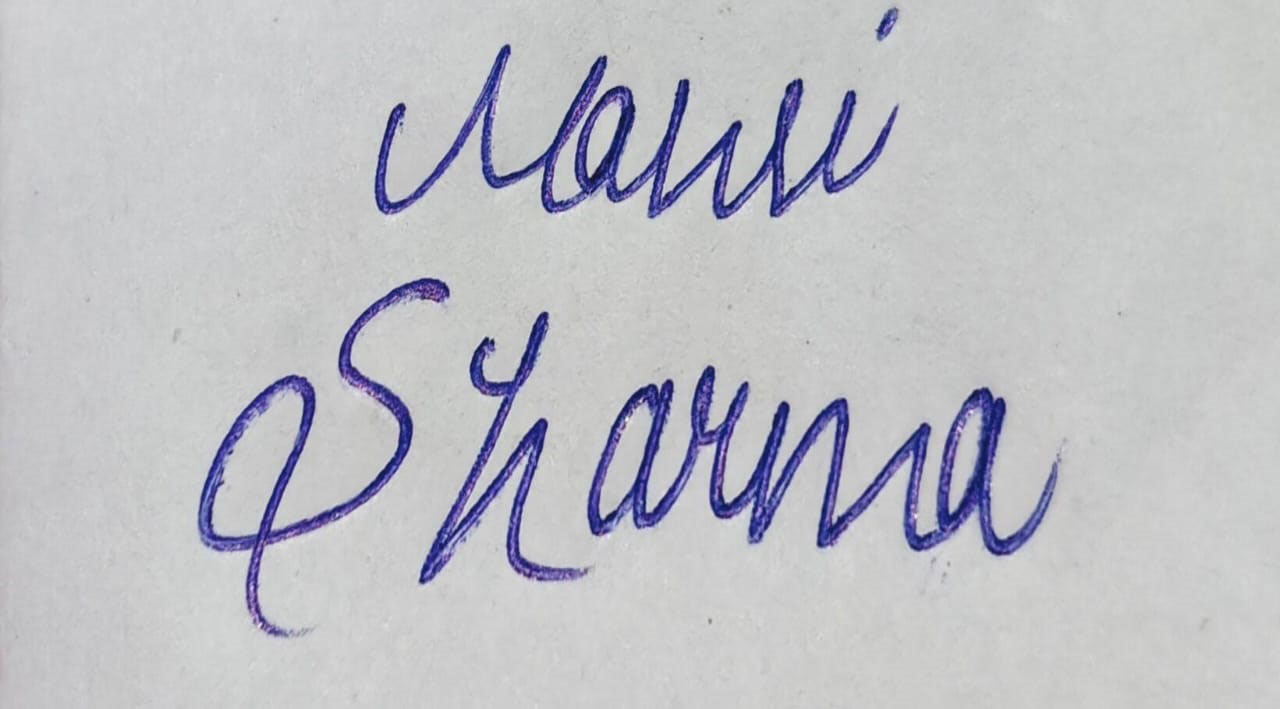 Mansi
Sharma